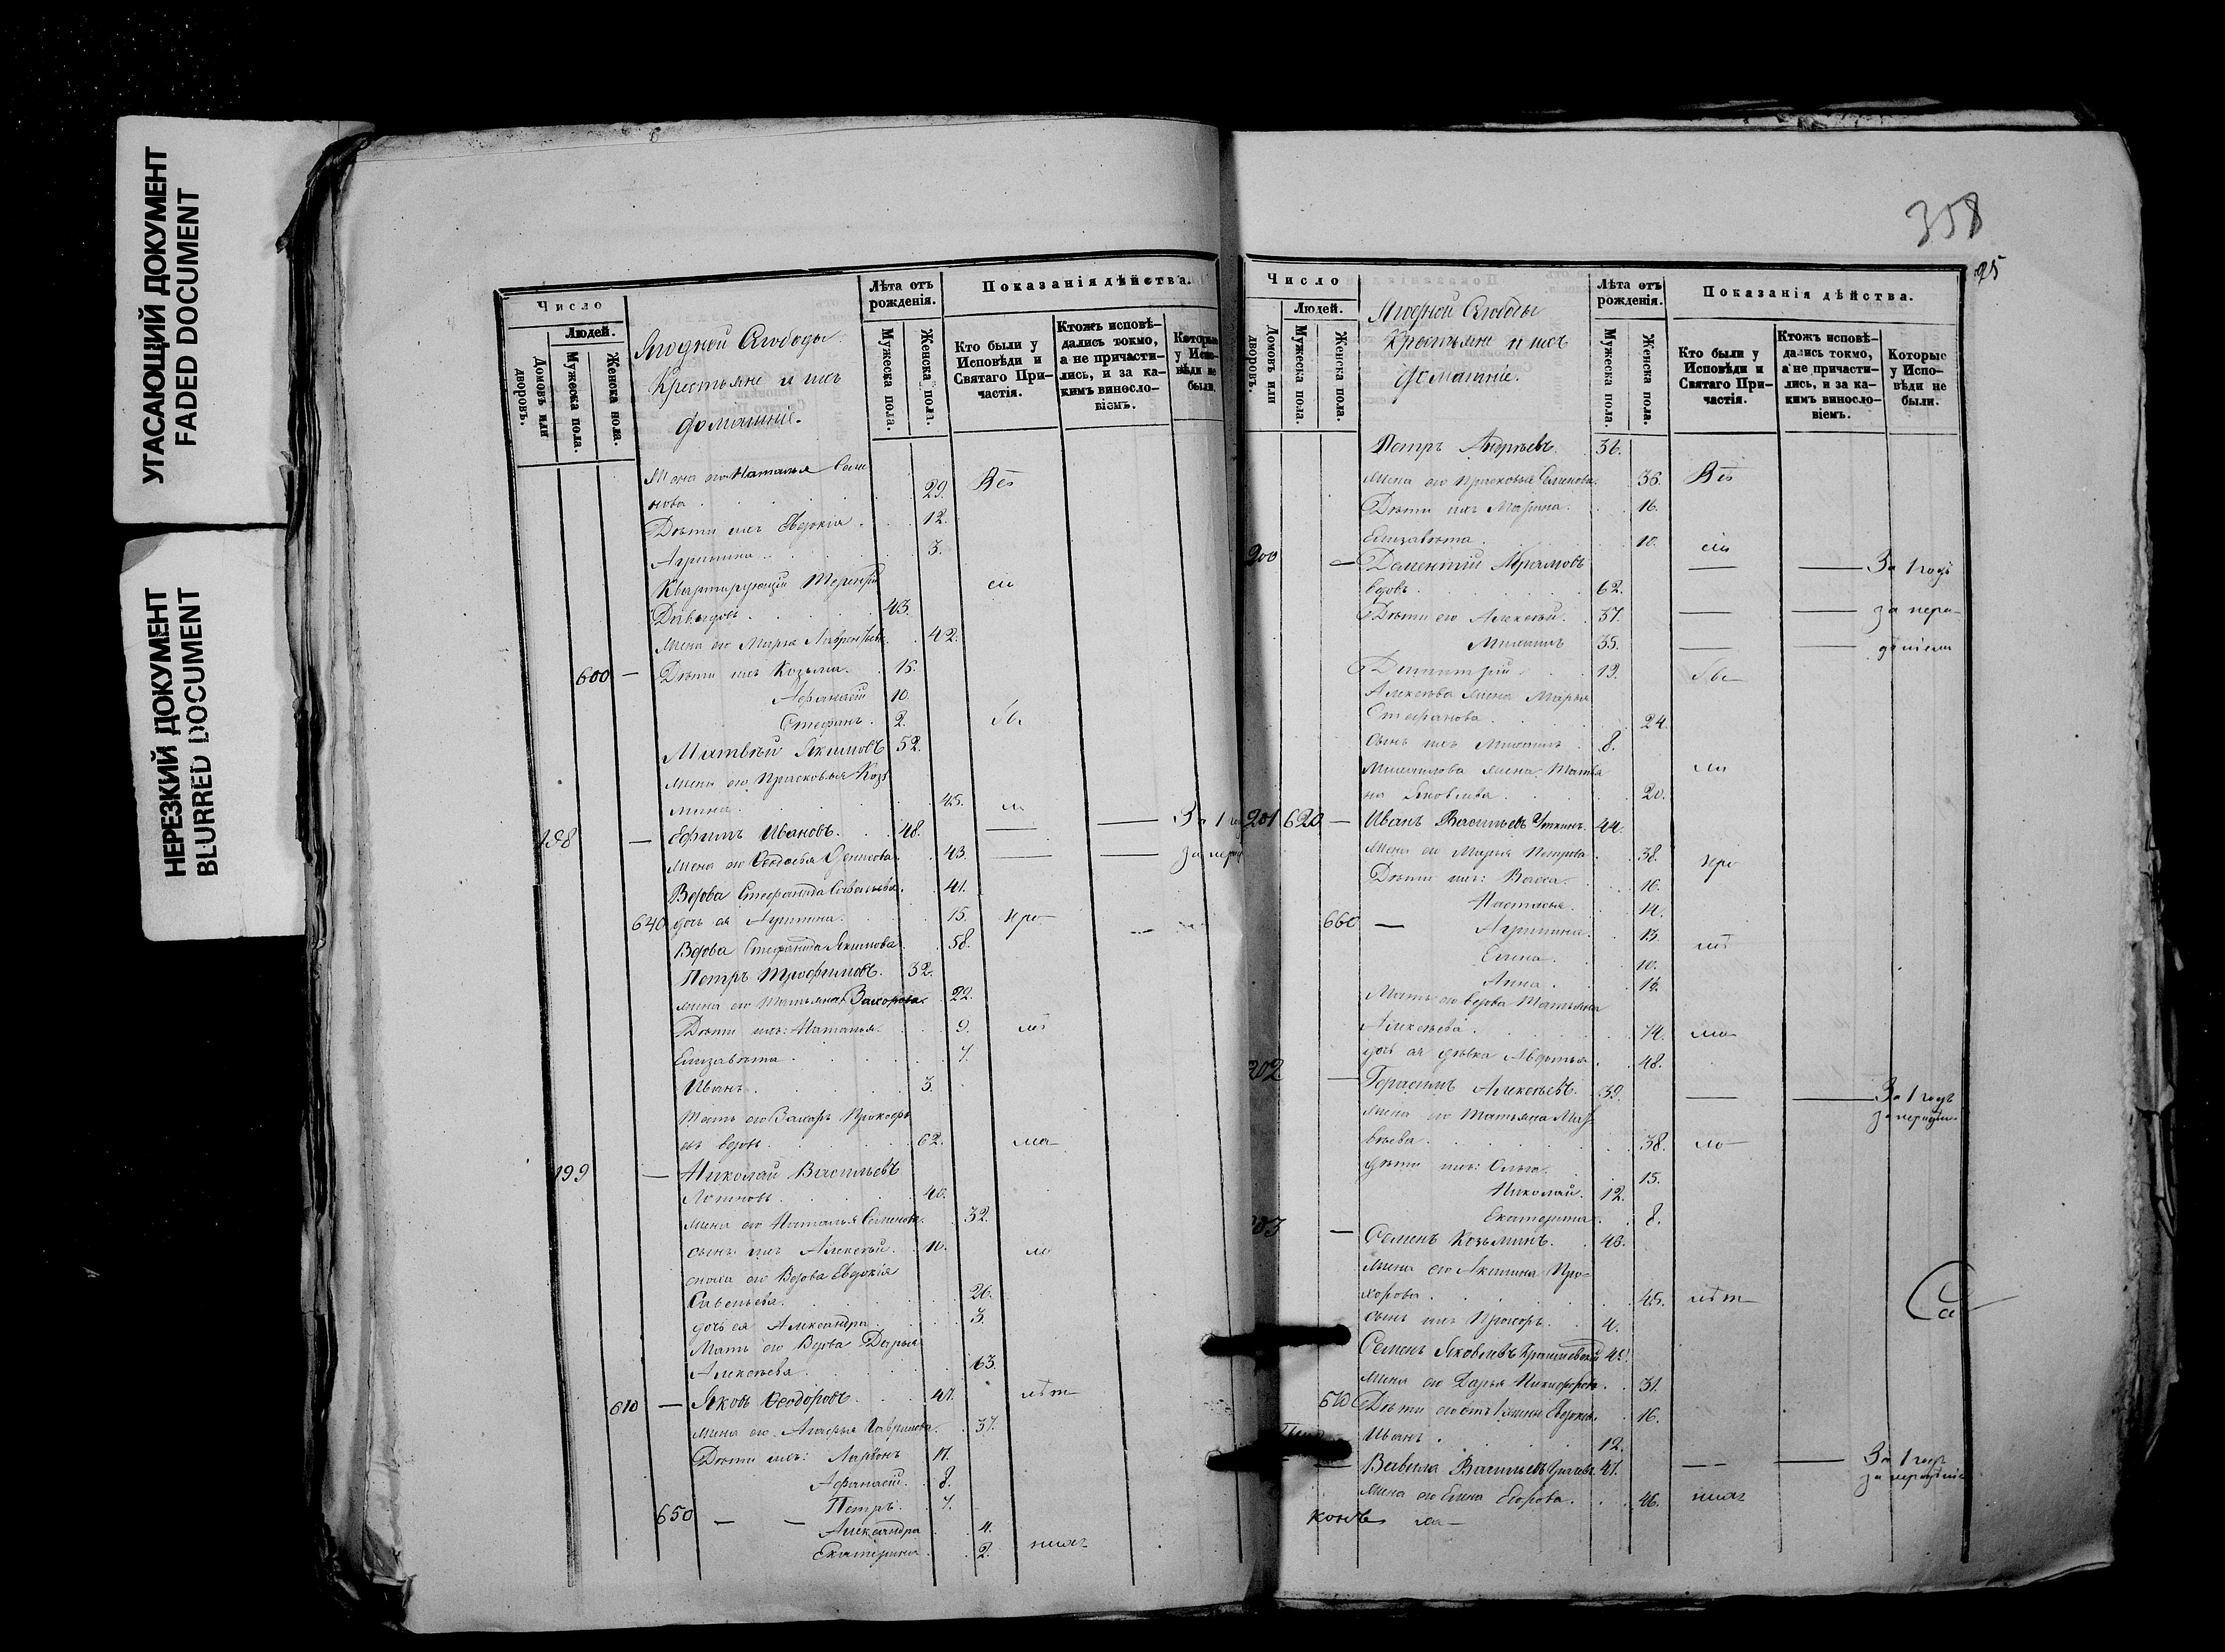 УГАСАЮЩИЙ ДОКУМЕНТ
FADED DOCUMENT
НЕРЕЗКИЙ ДОКУМЕНТ
BLURRED DOCUMENT
Число
Людей.
Домовъ или дворовъ.
Мужеска пола.
Женска пола.
Ягодной Слободы
Крестьяне и ихъ
домашніе.
Лѣта отъ рожденія.
Мужеска пола.
Женска пола.
Показанія дѣйства.
Кто были у Исповѣди и Святаго При-частія.
Ктожъ исповѣ-дались токмо, а не причасти-лись, и за ка-кимъ винносло-віемъ.
Которые у Испо-вѣди не были.
Жена его Наталья Семе
нова 29. Всѣ
Дѣти ихъ Евдокія 12.
Агрипина 3.
Давыдовъ 43.
Жена его Марья 42.
600 — Дѣти ихъ Козьма 15.
Афанасій 10.
Стефанъ 2.
Матвѣй Якимовъ 52.
Жена его Прасковья Козь
мина 45.
198 — Ефимъ Ивановъ 48. — — За 1 го
Жена его Ѳеодосья Денисова 43. — —
Вдова Стефанида Савельева 41.
640 дочь ея Агрипина 15.
Вдова Стефанида Якимова 58.
Петръ Трофимовъ 32.
жена его Татьяна Захарова 22.
Дѣти ихъ: Наталья 9.
Елизавета 7.
Иванъ 3.
Тесть его Захаръ Прокофь
евъ вдовъ 62.
199 — Николай Васильевъ
40.
Жена его Наталья Семенова 32.
сынъ ихъ Алексѣй 10.
сноха его Вдова Евдокія
Савельева 26.
дочь ея Александра 3.
Мать его Вдова Дарья
Алексѣева 63.
610 — Яковъ Ѳеодоровъ 47.
жена его Агафья Гаврилова 37.
Дѣти ихъ: Ларіонъ 11.
Афанасій 8.
Петръ 7.
650 — — Александра 4.
Екатерина 2.
358
95
Число
Людей.
Домовъ или дворовъ.
Мужеска пола.
Женска пола.
Ягодной Слободы
Крестьяне и ихъ
домашніе.
Лѣта отъ рожденія.
Мужеска пола.
Женска пола.
Показанія дѣйства.
Кто были у Исповѣди и Святаго При-частія.
Ктожъ исповѣ-дались токмо, а не причасти-лись, и за ка-кимъ винносло-віемъ.
Которые у Испо-вѣди не были.
Петръ Андреевъ 36.
жена его Прасковья Семенова 36. Всѣ
Дѣти ихъ Марина 16.
Елизавета 10.
200 — Дементій Абрамовъ — — За 1 годъ
вдовъ 62.
Дѣти его Алексѣй 37. — — за нера-
Михаилъ 35. — — дѣніемъ
Димитрій 13.
Алексѣева жена Марья
Стефанова 24.
сынъ ихъ Михаилъ 8.
Михаилова жена Татья
на Яковлева 20.
201 620 — Иванъ Васильевъ Уткинъ 44.
жена его Марья Петрова 38.
Дѣти ихъ: Васса 16.
Настасья 14.
660 — Агрипина 13.
Елена 10.
Анна
Мать его вдова Татьяна
Алексѣева 74.
дочь ея дѣвка Авдотья 48.
202 — Герасимъ Алексѣевъ 39. — — За 1 годъ
жена его Татьяна Мат за нерадѣн
вѣева 38.
дѣти ихъ: Ольга 15.
Николай 12.
Екатерина 8.
203 — Семенъ Козьминъ 43.
жена его Акилина Про-
хорова 45.
сынъ ихъ Прохоръ 4.
Семенъ Яковлевъ
Жена его Дарья Никифорова 31.
Дѣти Евдокія 16.
Иванъ 12.
— Вавила Васильевъ 41. — — За 1 годъ
за нерадѣніе
жена его Елена Егорова 46.